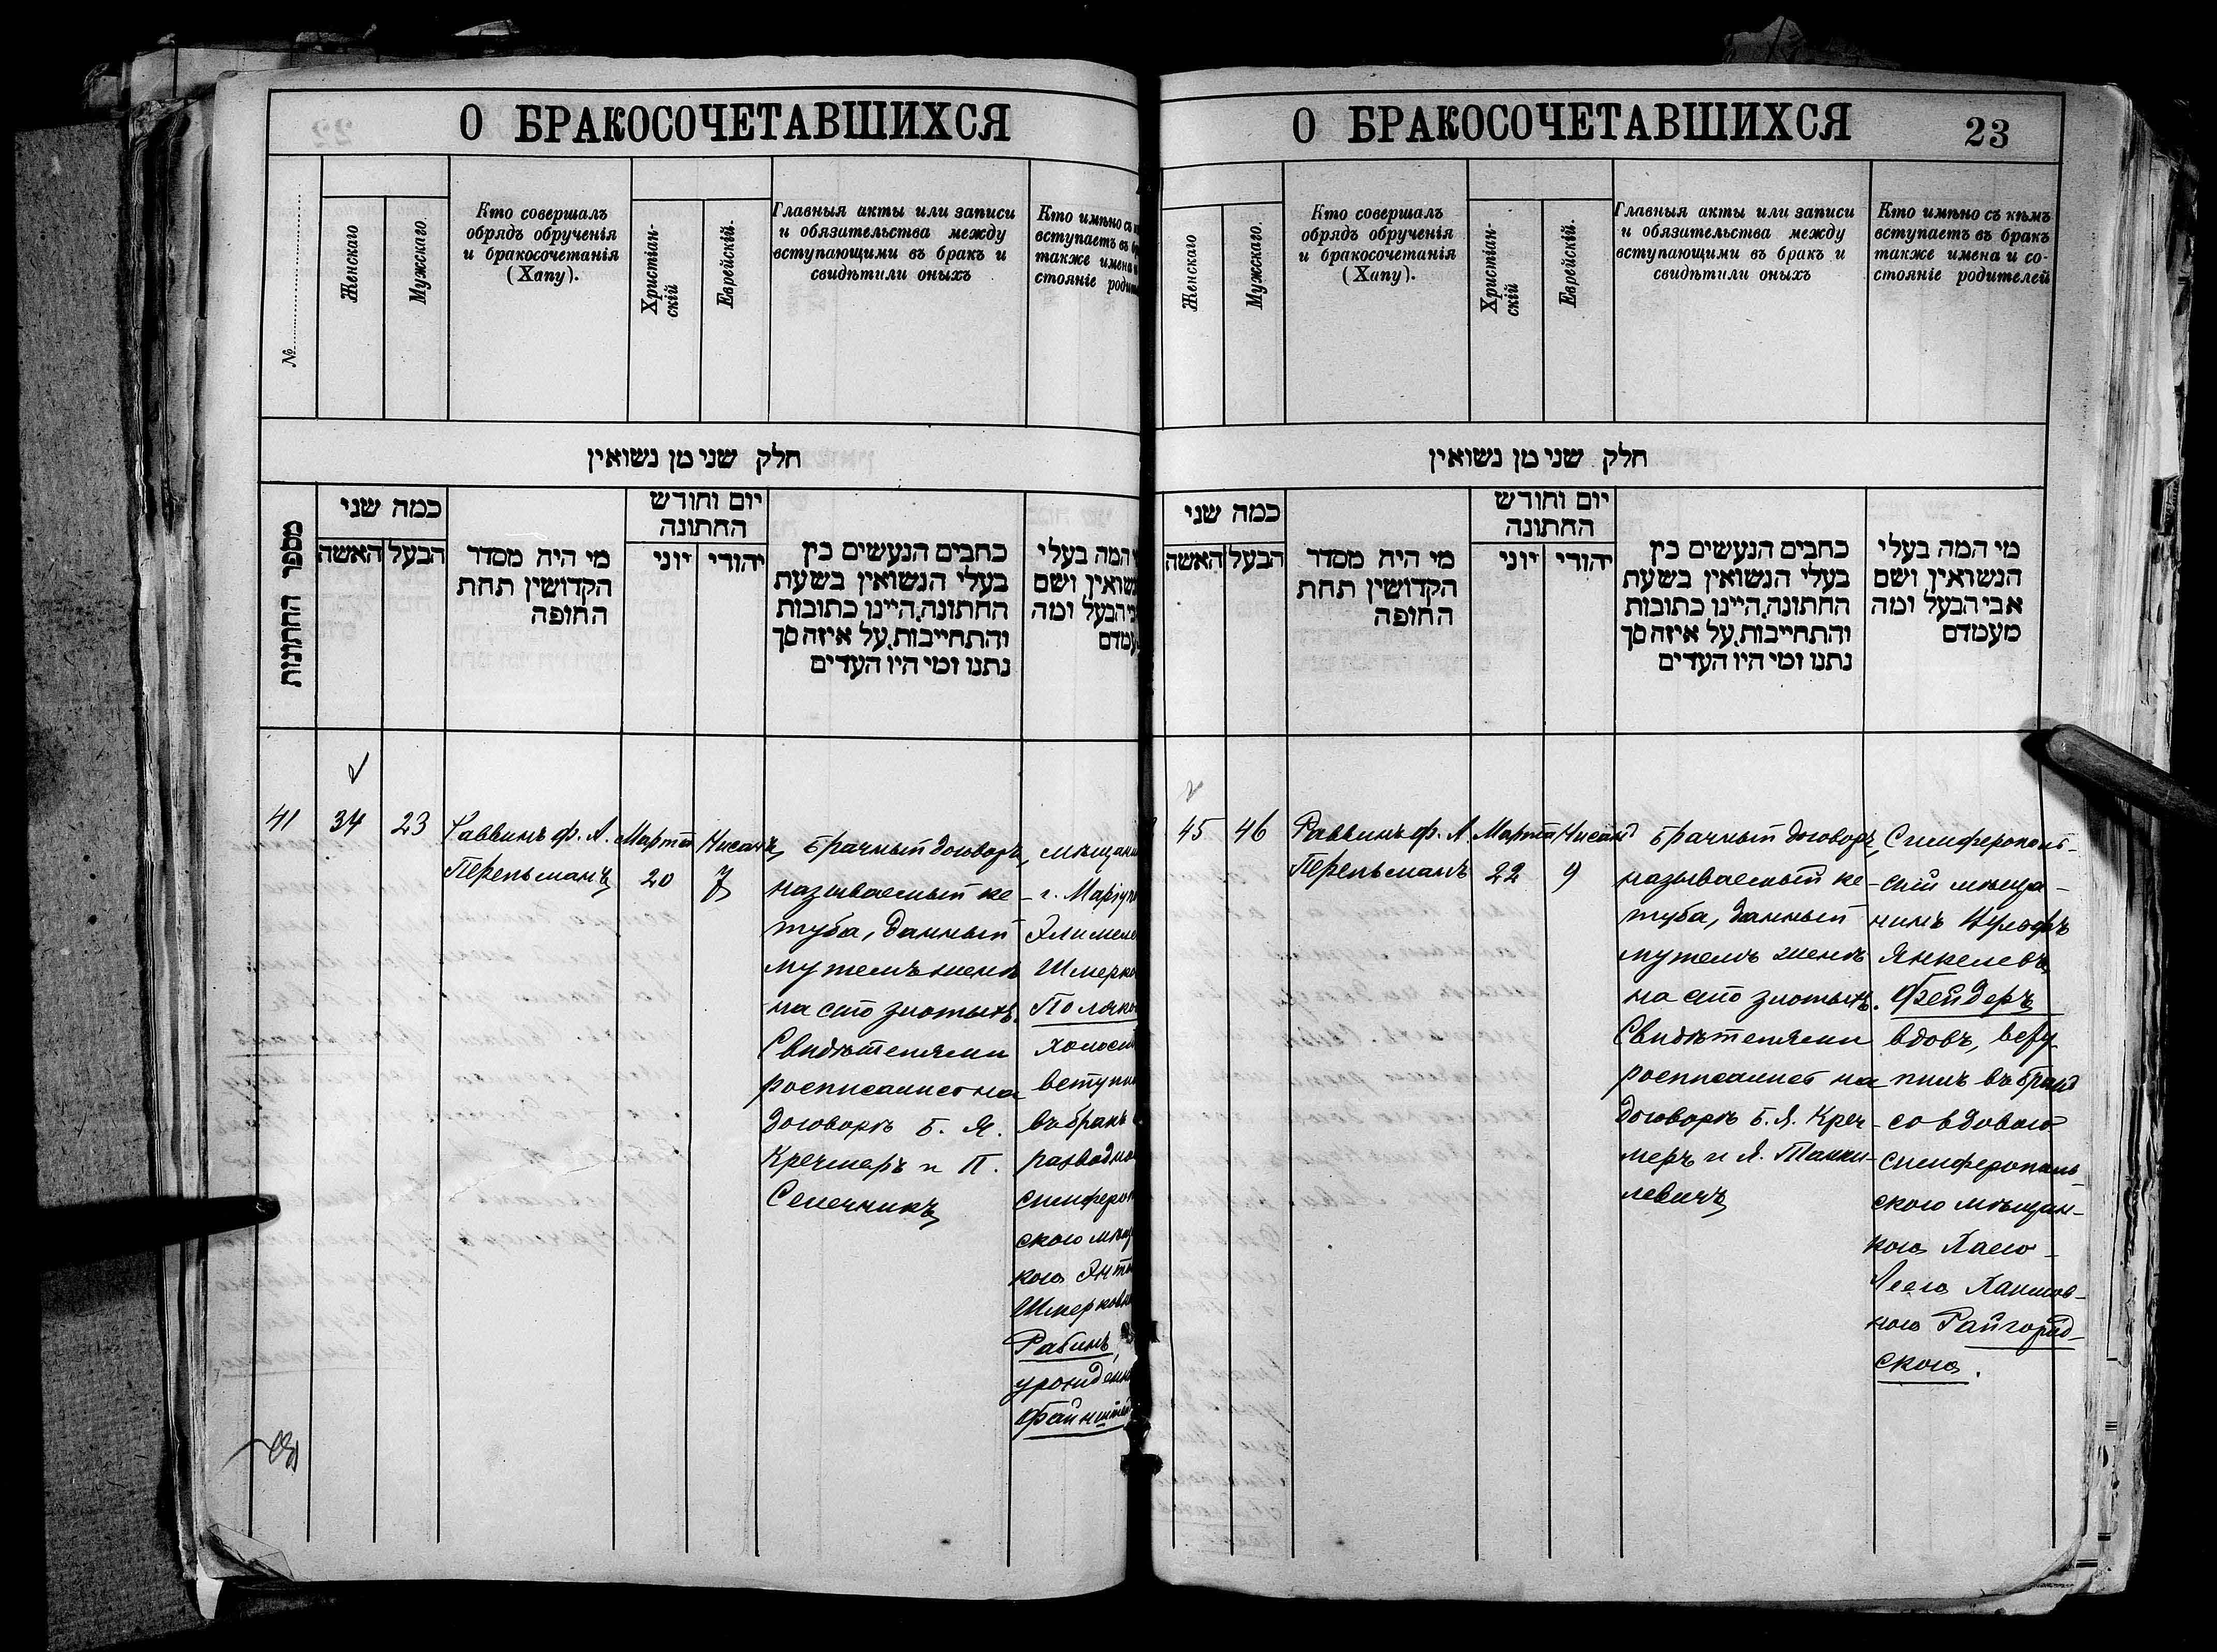 О БРАКОСОЧЕТАВШИХСЯ
№
Женскаго
Мужскаго
Кто совершалъ
обрядъ обрученія
и бракосочетанія
(Хапу).
Христіан-
скій
Еврейскій.
Главныя акты или записи
и обязательства между
вступающими въ бракъ и
свидѣтили оныхъ
Кто имѣно съ
вступаетъ въ
также имена и
стояніе
חלק שני מן נשואין
מספר החתונות
כמה שני
האשה
הבעל
מי היה מסדר
הקדושין תחת
החופה
יום וחודש
החתונה
יוני
יהודי
כתבים הנעשים בין
בעלי הנשואין בשעת
החתונה, היינו כתובות
והתחייבות, על איזה סך
נתנו ומי היו העדים
המה בעלי
ושם
הבעל ומה
41
34
23
Раввинъ Ф. А.
Перельманъ
Марта
20
Нисанъ
7
Брачный договоръ,
называемый ке-
туба, данный
мужемъ женѣ
на сто злотыхъ.
Свидѣтелями
росписались на
договорѣ Б. Я.
Кречмеръ и П.
Селечникъ
г.
въ бракъ
Рабинъ,
О БРАКОСОЧЕТАВШИХСЯ
23
Женскаго
Мужскаго
Кто совершалъ
обрядъ обрученія
и бракосочетанія
(Хапу).
Христіан-
скій
Еврейскій.
Главныя акты или записи
и обязательства между
вступающими въ бракъ и
свидѣтили оныхъ
Кто имѣно съ кѣмъ
вступаетъ въ бракъ
также имена и со-
стояніе родителей
חלק שני מן נשואין
כמה שני
האשה
הבעל
מי היה מסדר
הקדושין תחת
החופה
יום וחודש
החתונה
יוני
יהודי
כתבים הנעשים בין
בעלי הנשואין בשעת
החתונה, היינו כתובות
והתחייבות, על איזה סך
נתנו ומי היו העדים
מי המה בעלי
הנשואין ושם
אבי הבעל ומה
מעמדם
45
46
Раввинъ Ф. А.
Перельманъ
Марта
22
Нисанъ
9
Брачный договоръ,
называемый ке-
туба, данный
мужемъ женѣ
на сто злотыхъ.
Свидѣтелями
росписались на
договорѣ Б. Я. Креч-
меръ и Я. Танки-
левичъ
Симферополь-
скій мѣща-
нинъ
Янкелевъ
Фейдеръ
вдовъ, всту-
пилъ въ бракъ
со вдовою
симферополь-
скою мѣщан-
кою Хаею-
Леею Хаимов-
ною Райгород-
скою.